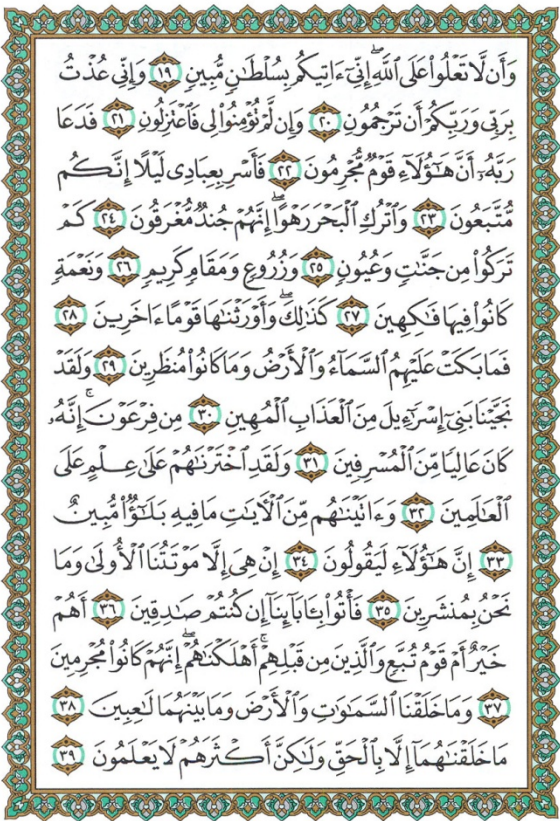 وَأَن لَّا تَعْلُوا۟ عَلَى ٱللَّهِ ۖ إِنِّىٓ ءَاتِيكُم بِسُلْطَـٰنٍ مُّبِينٍ ١٩ وَإِنِّى عُذْتُ
بِرَبِّى وَرَبِّكُمْ أَن تَرْجُمُونِ ٢٠ وَإِن لَّمْ تُؤْمِنُوا۟ لِى فَٱعْتَزِلُونِ ٢١ فَدَعَا
رَبَّهُۥٓ أَنَّ هَـٰٓؤُلَآءِ قَوْمٌ مُّجْرِمُونَ ٢٢ فَأَسْرِ بِعِبَادِى لَيْلًا إِنَّكُم
مُّتَّبَعُونَ ٢٣ وَٱتْرُكِ ٱلْبَحْرَ رَهْوًا ۖ إِنَّهُمْ جُندٌ مُّغْرَقُونَ ٢٤ كَمْ
تَرَكُوا۟ مِن جَنَّـٰتٍ وَعُيُونٍ ٢٥ وَزُرُوعٍ وَمَقَامٍ كَرِيمٍ ٢٦ وَنَعْمَةٍ
كَانُوا۟ فِيهَا فَـٰكِهِينَ ٢٧ كَذَٰلِكَ ۖ وَأَوْرَثْنَـٰهَا قَوْمًا ءَاخَرِينَ ٢٨
فَمَا بَكَتْ عَلَيْهِمُ ٱلسَّمَآءُ وَٱلْأَرْضُ وَمَا كَانُوا۟ مُنظَرِينَ ٢٩ وَلَقَدْ
نَجَّيْنَا بَنِىٓ إِسْرَٰٓءِيلَ مِنَ ٱلْعَذَابِ ٱلْمُهِينِ ٣٠ مِن فِرْعَوْنَ ۚ إِنَّهُۥ
كَانَ عَالِيًا مِّنَ ٱلْمُسْرِفِينَ ٣١ وَلَقَدِ ٱخْتَرْنَـٰهُمْ عَلَىٰ عِلْمٍ عَلَى
ٱلْعَـٰلَمِينَ ٣٢ وَءَاتَيْنَـٰهُم مِّنَ ٱلْـَٔايَـٰتِ مَا فِيهِ بَلَـٰٓؤٌا۟ مُّبِينٌ
٣٣ إِنَّ هَـٰٓؤُلَآءِ لَيَقُولُونَ ٣٤ إِنْ هِىَ إِلَّا مَوْتَتُنَا ٱلْأُولَىٰ وَمَا
نَحْنُ بِمُنشَرِينَ ٣٥ فَأْتُوا۟ بِـَٔابَآئِنَآ إِن كُنتُمْ صَـٰدِقِينَ ٣٦ أَهُمْ
خَيْرٌ أَمْ قَوْمُ تُبَّعٍ وَٱلَّذِينَ مِن قَبْلِهِمْ ۚ أَهْلَكْنَـٰهُمْ ۖ إِنَّهُمْ كَانُوا۟ مُجْرِمِينَ
٣٧ وَمَا خَلَقْنَا ٱلسَّمَـٰوَٰتِ وَٱلْأَرْضَ وَمَا بَيْنَهُمَا لَـٰعِبِينَ ٣٨
مَا خَلَقْنَـٰهُمَآ إِلَّا بِٱلْحَقِّ وَلَـٰكِنَّ أَكْثَرَهُمْ لَا يَعْلَمُونَ ٣٩